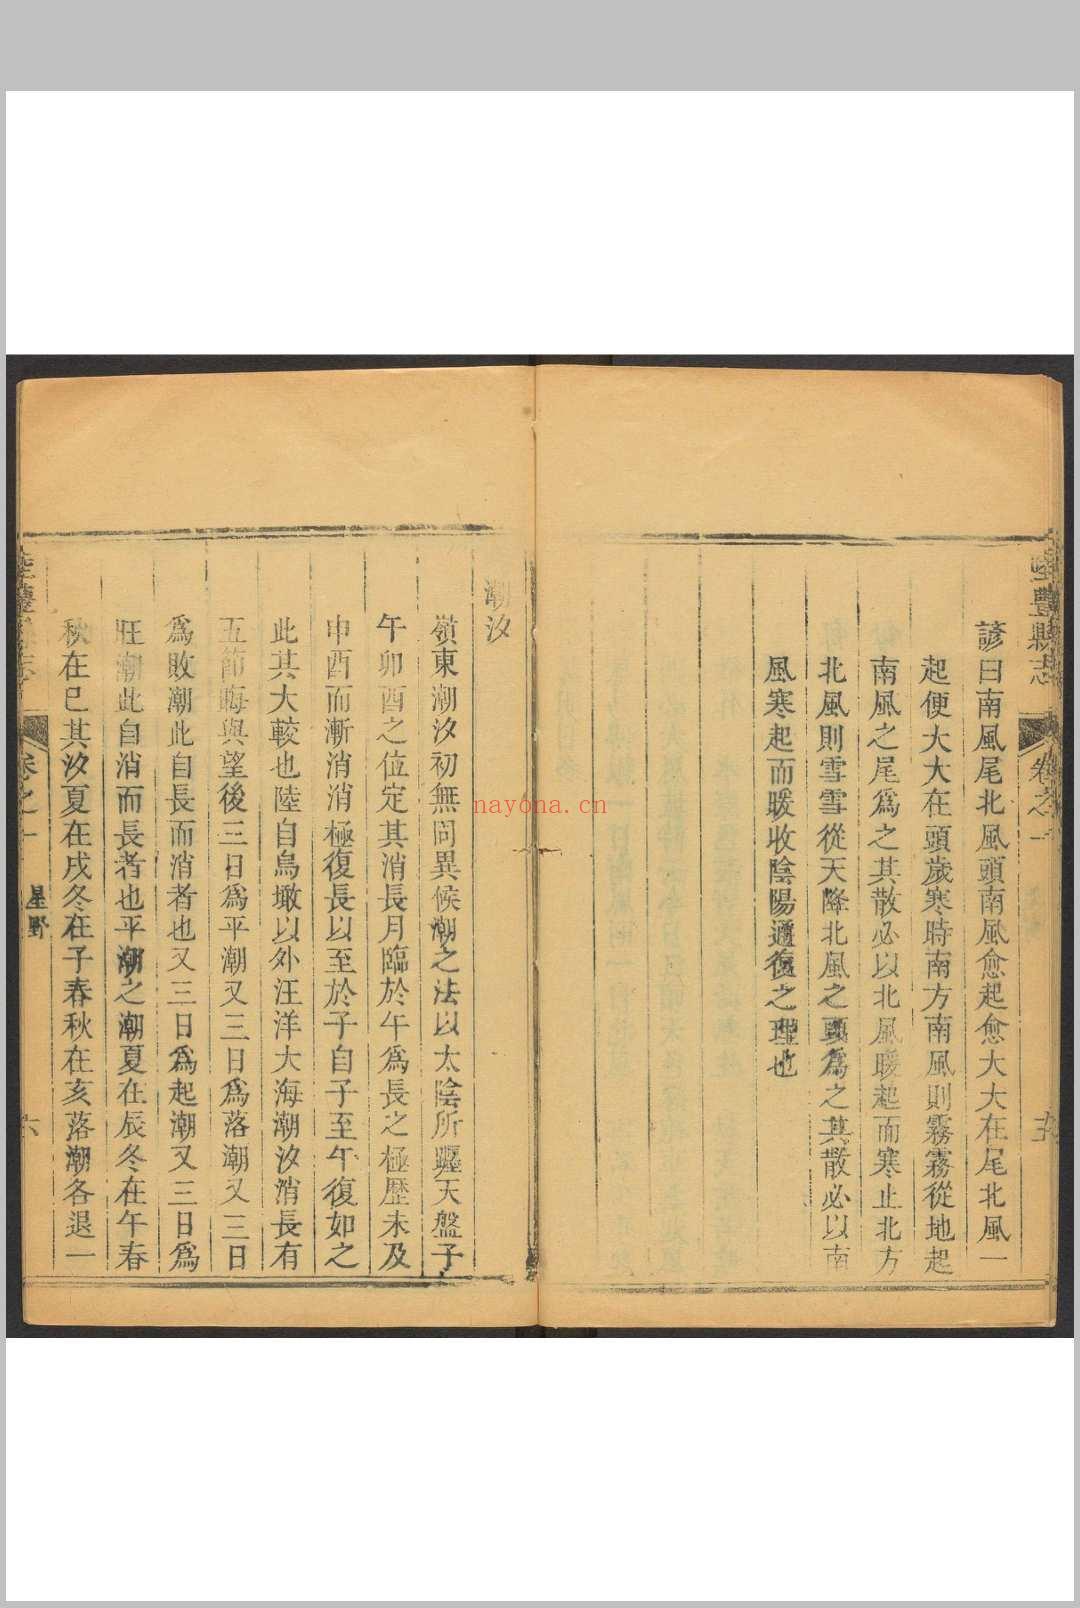 陸豐縣志
卷之一
諺曰南風尾北風頭南風愈起愈大大在尾北風一
起便大大在頭歲寒時南方南風則霧霧從地起
南風之尾爲之其散必以北風暖起而寒止北方
北風則雪雪從天降北風之頭爲之其散必以南
風寒起而暖收陰陽遞復之理也
潮汐
嶺東潮汐初無同異候潮之法以太陰所躔天盤子
午卯酉之位定其消長月臨於午爲長之極歷未及
申酉而漸消消極復長以至於子自子至午復如之
此其大較也陸自烏墩以外汪洋大海潮汐消長有
五節晦與望後三日爲平潮又三日爲落潮又三日
爲敗潮此自長而消者也又三日爲起潮又三日爲
旺潮此自消而長者也平潮之潮夏在辰冬在午春
秋在巳其汐夏在戌冬在子春秋在亥落潮各退一
卷之一
星野
六
nayona.cn